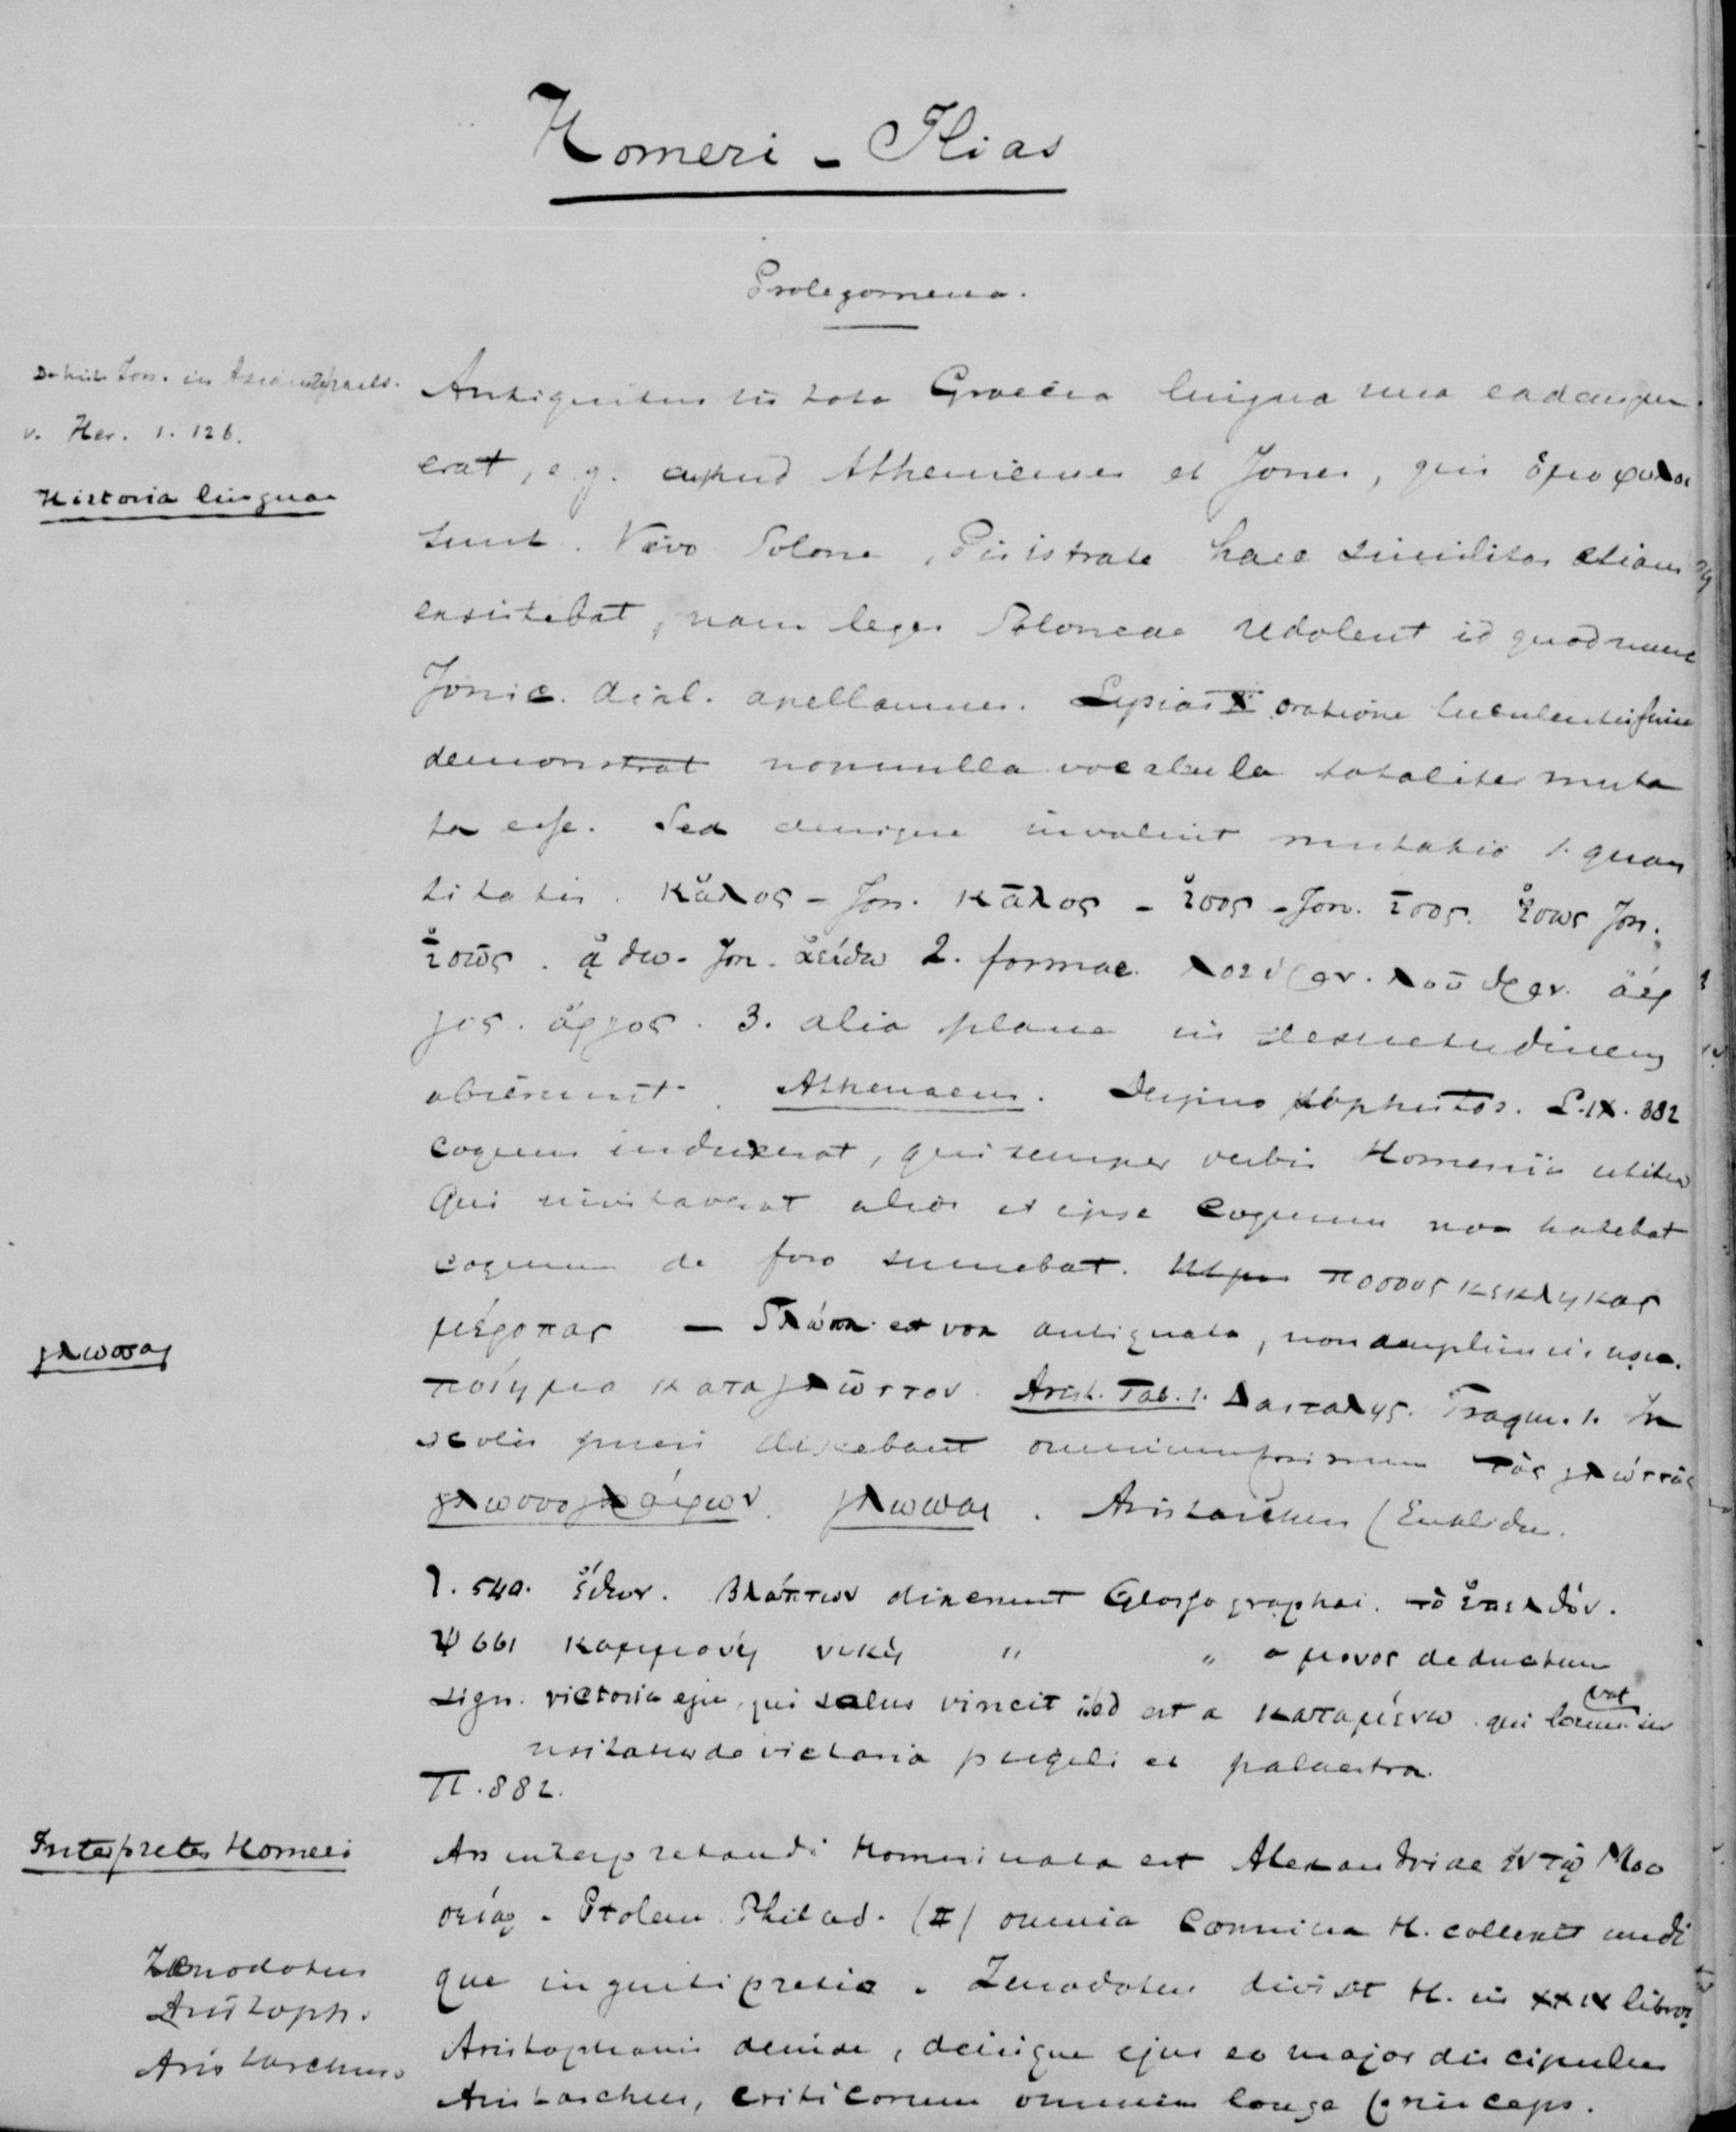 Homeri - Ilias
Prolegomena.
v. Her. 1. 126.
Historia linguae
Antiquitus in tota Graecia lingua una eademque
erat, e.g. apud Athenienses et Jones, qui ὁμόφυλοι
sunt. Vivo Solone, Pisistrato haec similitas etiam
exsistebat, nam leges Soloneae redolent id quod nunc
Jonic. dial. apellamus. Lysias X oratione luculentissime
demonstrat nonnulla vocabula totaliter muta
ta esse. Sed denique invaluit mutatio 1. quan
titatis. κᾰλος - Jon. κᾱλος - ἴσος - Jon. ῑσος. ἴσως Jon.
ῑσως. ᾄδω - Jon. ἀείδω 2. formae. λοέτρον. λοῦτρον. ἀερ
γος. ἀργος. 3. alia plane in desuetudinem
abierunt. Athenaeus. Deipno sophistos. L. IX. 382
coquum induxerat, qui semper verbis Homericis utitur
Qui invitaverat alios et ipse coquum non habebat
coquum de foro sumebat. πόσους κέκληκας
γλωσσαι
μέροπας — Γλῶσσα est vox antiquata, non amplius in usu.
ποίημα καταγλώττον. Arist. Fab. 1. Δαιταλῆς. Fragm. 1. In
scolis pueri discebant omnium primum τὰς γλώττας
γλωσσογράφων. γλωσσαι. Aristarchus (Euklides.
Ι. 540. ἔθων. βλάπτων dixerunt Glossographoi. τὸ ἐπελθόν.
Ψ 661 καμμονίη νίκη " " a μονος deductum
sign. victoria ejus, qui solus vincit sed est a καταμένω. qui
usitatur de victoria pugili et palaestra.
Π. 882.
Interpretes Homeri
Ars interpretandi Homeri nata est Alexandriae ἐν τῷ Μου
σείῳ. Ptolem. Philad. (II) omnia Carmina H. collexit undi
Zenodotus
que ingenti pretio. Zenodotus divisit H. in XXIV libros
Aristoph.
Aristophanis deinde, denique ejus eo major discipulus
Aristarchus
Aristarchus, criticorum omnium longe princeps.